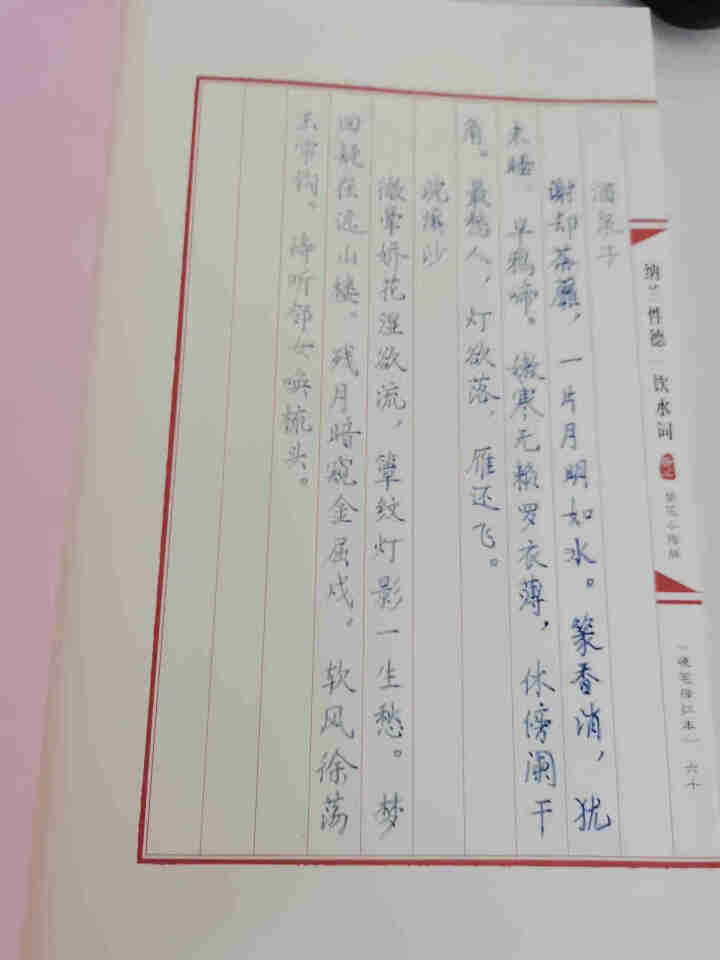 纳兰性德 饮水词
硬笔描红本
六十
酒泉子
谢却荼蘼，一片月明如水。篆香消，犹
未睡，早鸦啼。嫩寒无赖罗衣薄，休傍阑干
角。最愁人，灯欲落，雁还飞。
浣溪沙
微晕娇花湿欲流，簟纹灯影一生愁。梦
回疑在远山楼。残月暗窥金屈戌，软风徐荡
玉帘钩。待听邻女唤梳头。